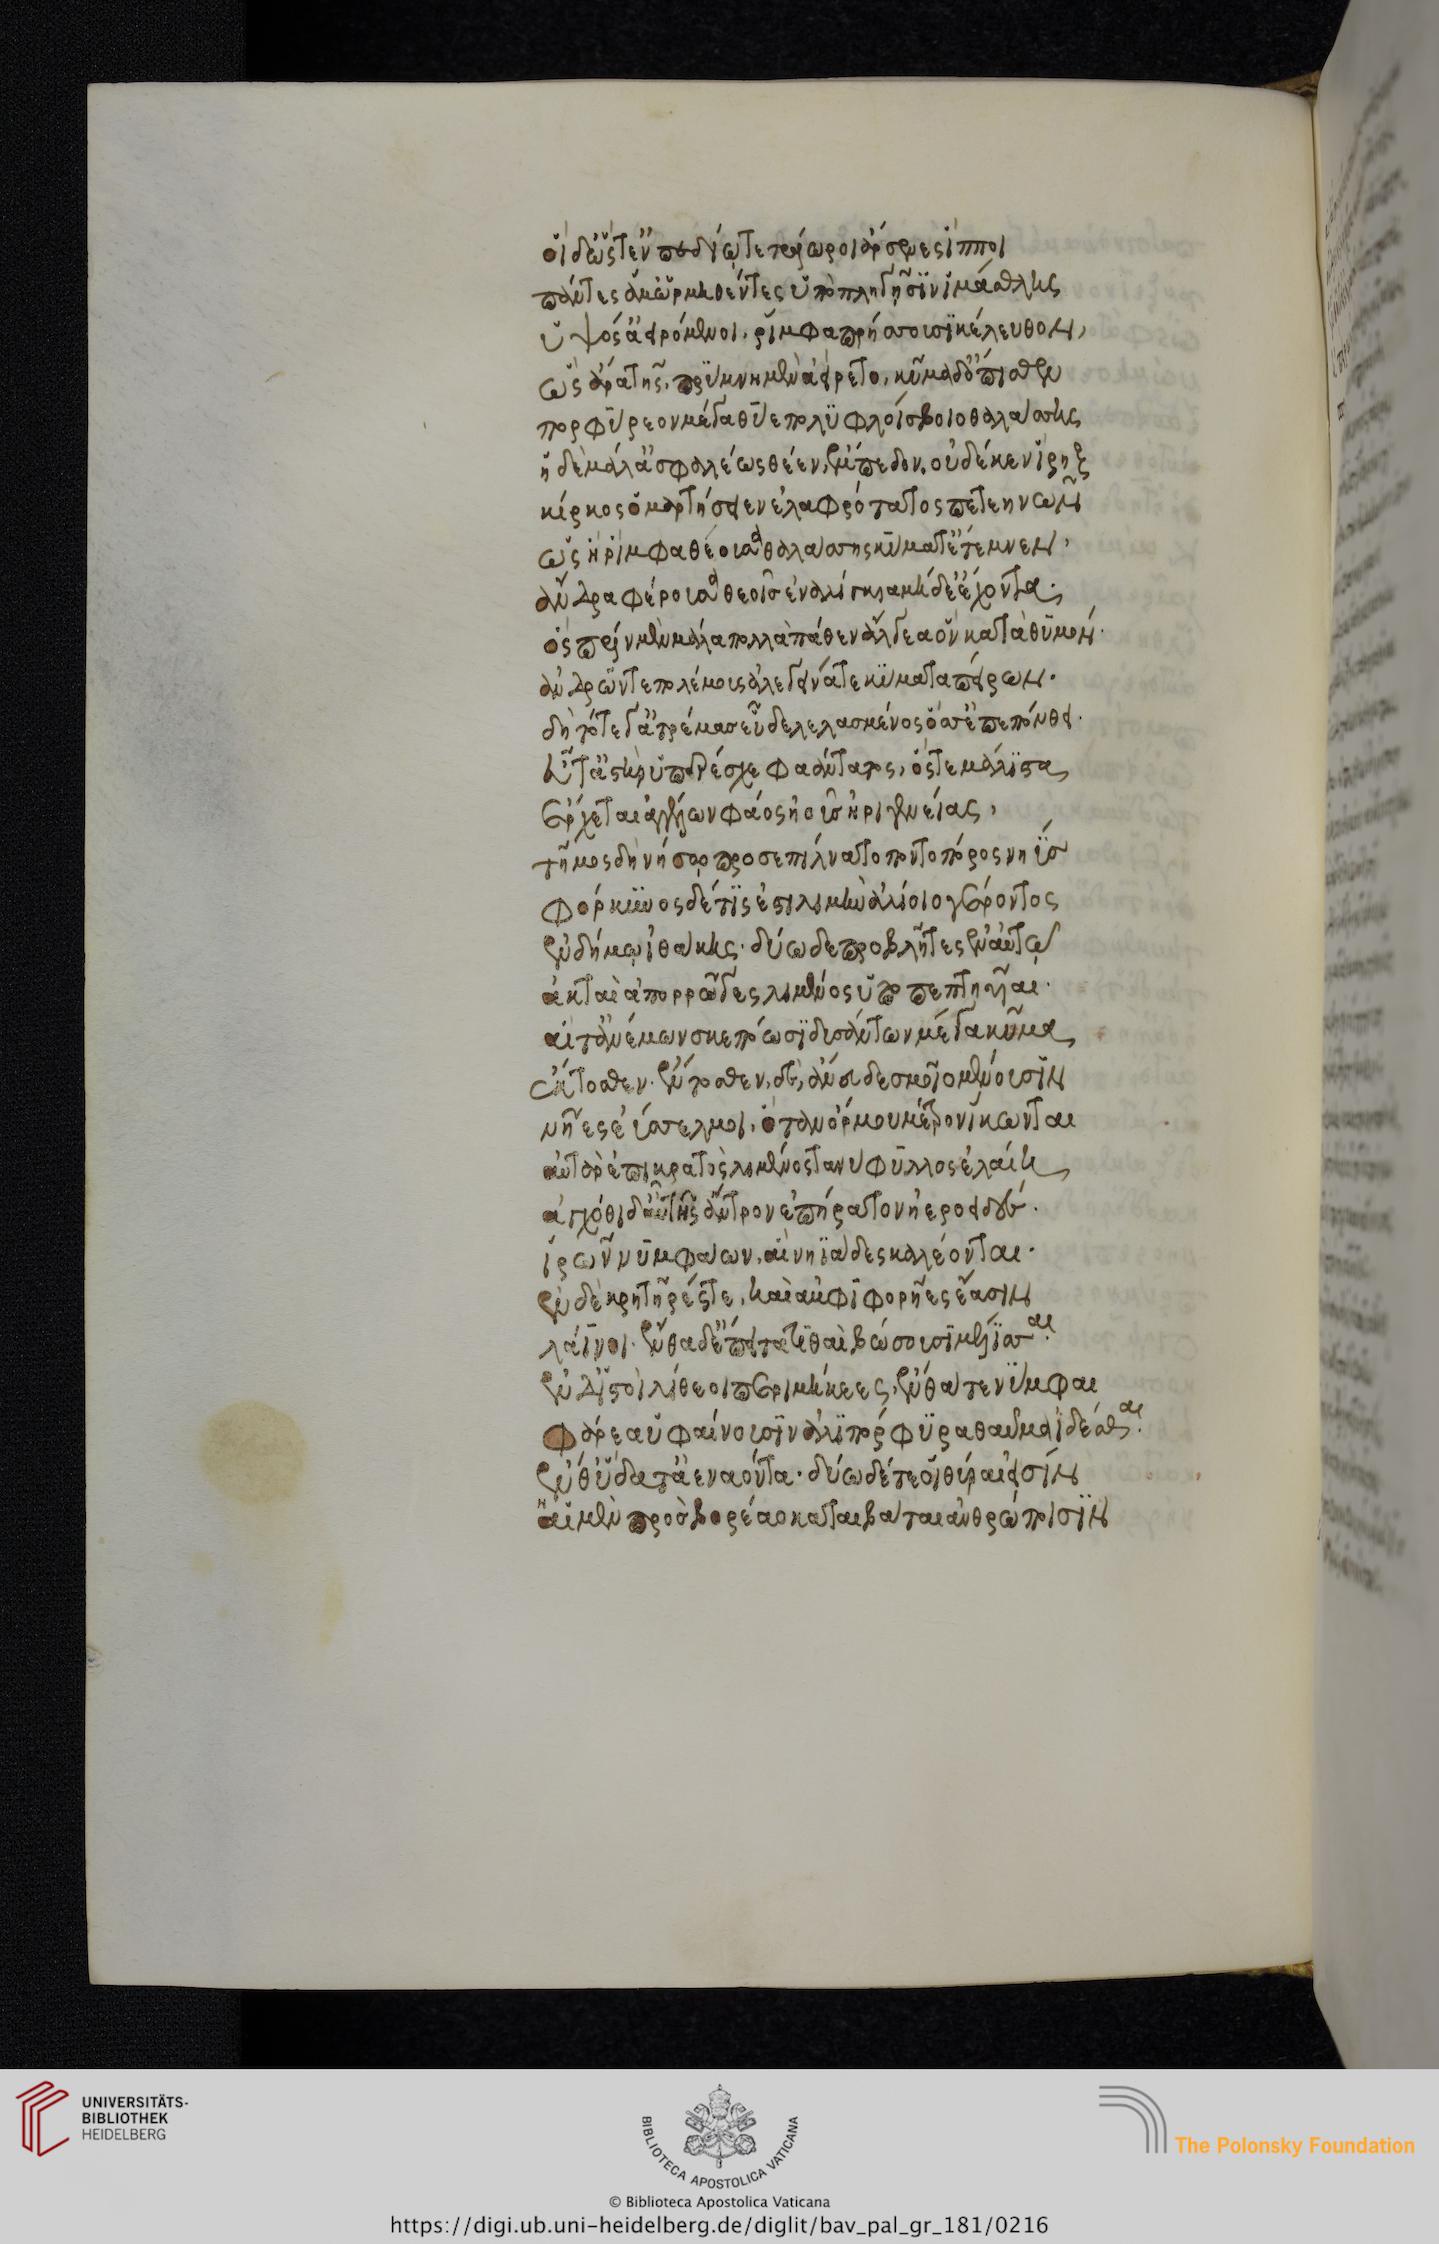 οἱ δ᾽ ὥς τ᾽ ἐν πεδίῳ τετράωροι ἄρσενες ἵπποι
πάντες ἅμ᾽ ὁρμηθέντες ὑπὸ πληγῇσιν ἱμάσθλης
ὑψόσ᾽ ἀειρόμενοι, ῥίμφα πρήσσουσι κέλευθον,
ὣς ἄρα τῆς πρύμνη μὲν ἀείρετο, κῦμα δ᾽ ὄπισθεν
πορφύρεον μέγα θῦε πολυφλοίσβοιο θαλάσσης
ἡ δὲ μάλ᾽ ἀσφαλέως θέεν, ἔμπεδον, οὐδέ κεν ἴρηξ
κίρκος ὁμαρτήσειεν ἐλαφρότατος πετεηνῶν
ὣς ἡ ῥίμφα θέουσα θαλάσσης κύματ᾽ ἔτεμνεν,
ἄνδρα φέρουσα θεοῖσ ἐναλίγκια μήδε᾽ ἔχοντα.
ὃς πρὶν μὲν μάλα πολλὰ πάθεν ἄλγεα ὃν κατὰ θυμόν.
ἀνδρῶν τε πολέμους ἀλεγεινά τε κύματα πείρων.
δὴ τότε γ᾽ ἀτρέμας εὗδε λελασμένος ὅσσ᾽ ἐπεπόνθει.
εὖτ᾽ ἀστὴρ ὑπερέσχε φαάντατος, ὅς τε μάλιστα
ἔρχεται ἀγγέλλων φάος ἠοῦς ἠριγενείας,
τῆμος δὴ νήσῳ προσεπίλνατο ποντοπόρος νηῦσ
φόρκυνος δέ τις ἐστὶ λιμὴν ἁλίοιο γέροντος
ἐν δήμῳ ἰθάκης. δύω δὲ προβλῆτες ἐν αὐτῷ
ἀκταὶ ἀπορρῶγες λιμένος ὑποπεπτηυῖαι.
αἵ τ᾽ ἀνέμων σκεπόωσι δυσαήτων μέγα κῦμα
ἔκτοσθεν. ἔντοσθεν, δέ, ἄνευ δεσμοῖο μένουσιν
νῆες ἐΰσσελμοι, ὅτ᾽ ἂν ὅρμου μέτρον ἵκωνται
αὐτὰρ ἐπὶ κρατὸς λιμένος τανύφυλλος ἐλαίη
ἀγχόθι δ᾽ αὐτῆς ἄντρον ἐπήρατον ἠεροειδές.
ἱρὸν νυμφάων, αἳ νηϊάδες καλέονται.
ἐν δὲ κρητῆρές τε, καὶ ἀμφιφορῆες ἔασιν
λάϊνοι. ἔνθα δ᾽ ἔπειτα τιθαιβώσσουσι μέλισσαι.
ἐν δ᾽ ἱστοὶ λίθεοι περιμήκεες, ἔνθα τε νύμφαι
φάρε᾽ ὑφαίνουσιν ἁλιπόρφυρα θαῦμα ἰδέσθαι.
ἐν δ᾽ ὕδατ᾽ ἀεναοντα. δύω δέ τε οἱ θύραι εἰσίν
αἱ μὲν πρὸς βορέαο καταιβαταὶ ἀνθρώποισιν
UNIVERSITÄTS-
BIBLIOTHEK
HEIDELBERG
BIBLIOTECA APOSTOLICA VATICANA
The Polonsky Foundation
© Biblioteca Apostolica Vaticana
https://digi.ub.uni-heidelberg.de/diglit/bav_pal_gr_181/0216